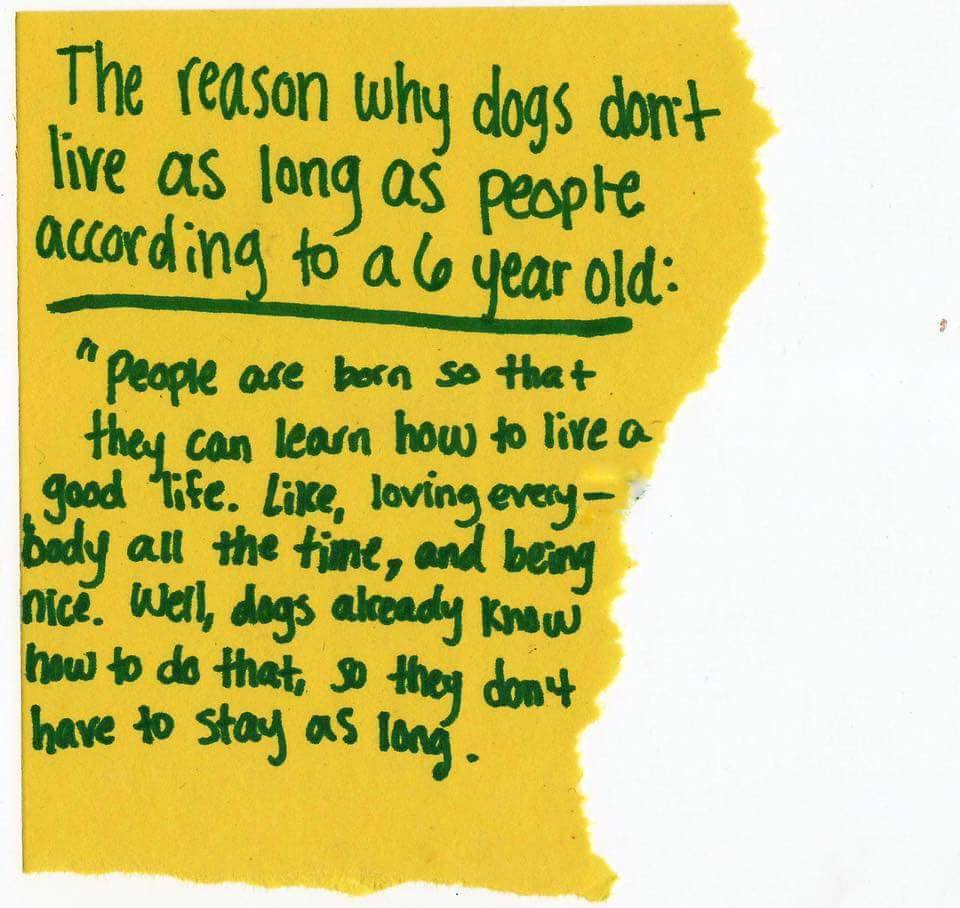 The reason why dogs don't
live as long as people
according to a 6 year old:
"People are born so that
they can learn how to live a
good life. Like, loving every-
body all the time, and being
nice. Well, dogs already know
how to do that, so they don't
have to stay as long.